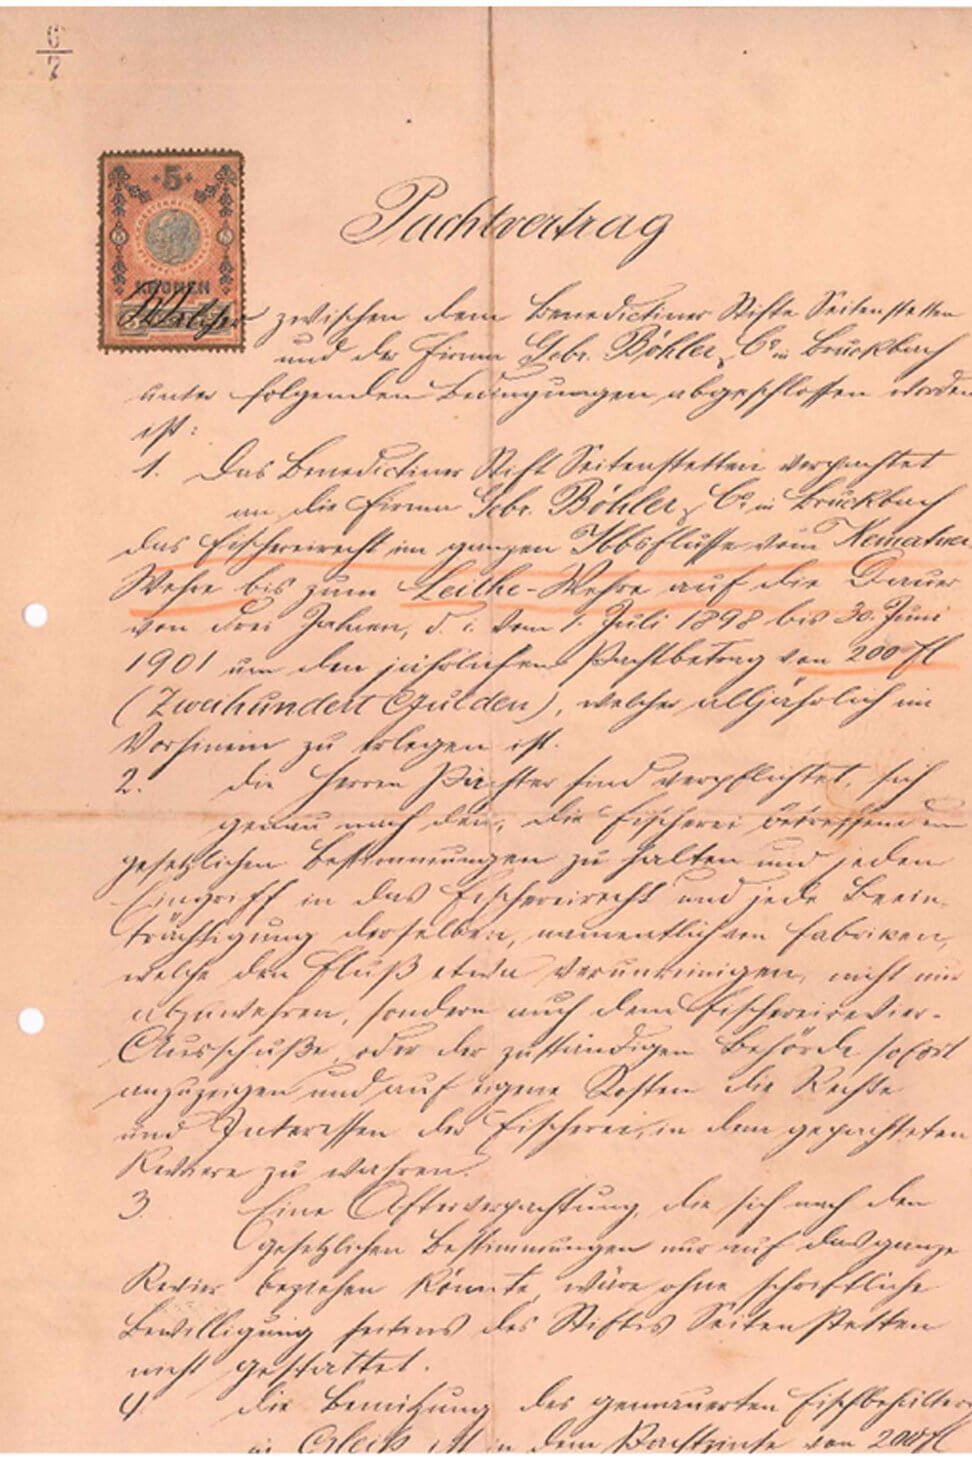 6
7
5
KRONEN
Pachtvertrag
Welcher zwischen dem Benedictiner Stifte Seitenstetten
und der Firma Gebr. Böhler & Co in Bruckbach
unter folgenden Bedingungen abgeschlossen worden
ist:
1. Das Benedictiner Stift Seitenstetten verpachtet
an die Firma Gebr. Böhler & Co in Bruckbach
das Fischereirecht im ganzen Ybbsflusse vom
Wehre bis zum Leithe-Wehre auf die Dauer
von drei Jahren, d. i. vom 1. Juli 1898 bis 30. Juni
1901 um den jährlichen Pachtbetrag von 200 fl
(Zweihundert Gulden), welcher alljährlich im
Vorhinein zu erlegen ist.
2. Die Herren Pächter sind verpflichtet, sich
genau nach den, die Fischerei betreffenden
gesetzlichen Bestimmungen zu halten und jeden
Eingriff in das Fischereirecht und jede Beein-
trächtigung derselben, namentlich von Fabriken,
welche den Fluß etwa verunreinigen, nicht nur
abzuwehren, sondern auch dem Fischereirevier-
Ausschuße oder der zuständigen Behörde sofort
anzuzeigen und auf eigene Kosten die Rechte
und Interessen der Fischerei, in dem gepachteten
Reviere zu wahren.
3. Eine Afterverpachtung, die sich nach den
gesetzlichen Bestimmungen nur auf das ganze
Revier beziehen könnte, wäre ohne schriftliche
Bewilligung seitens des Stiftes Seitenstetten
nicht gestattet.
4 Die Benützung des gemauerten Fischbehälters
in Gleiß ist in dem Pachtzinse von 200 fl